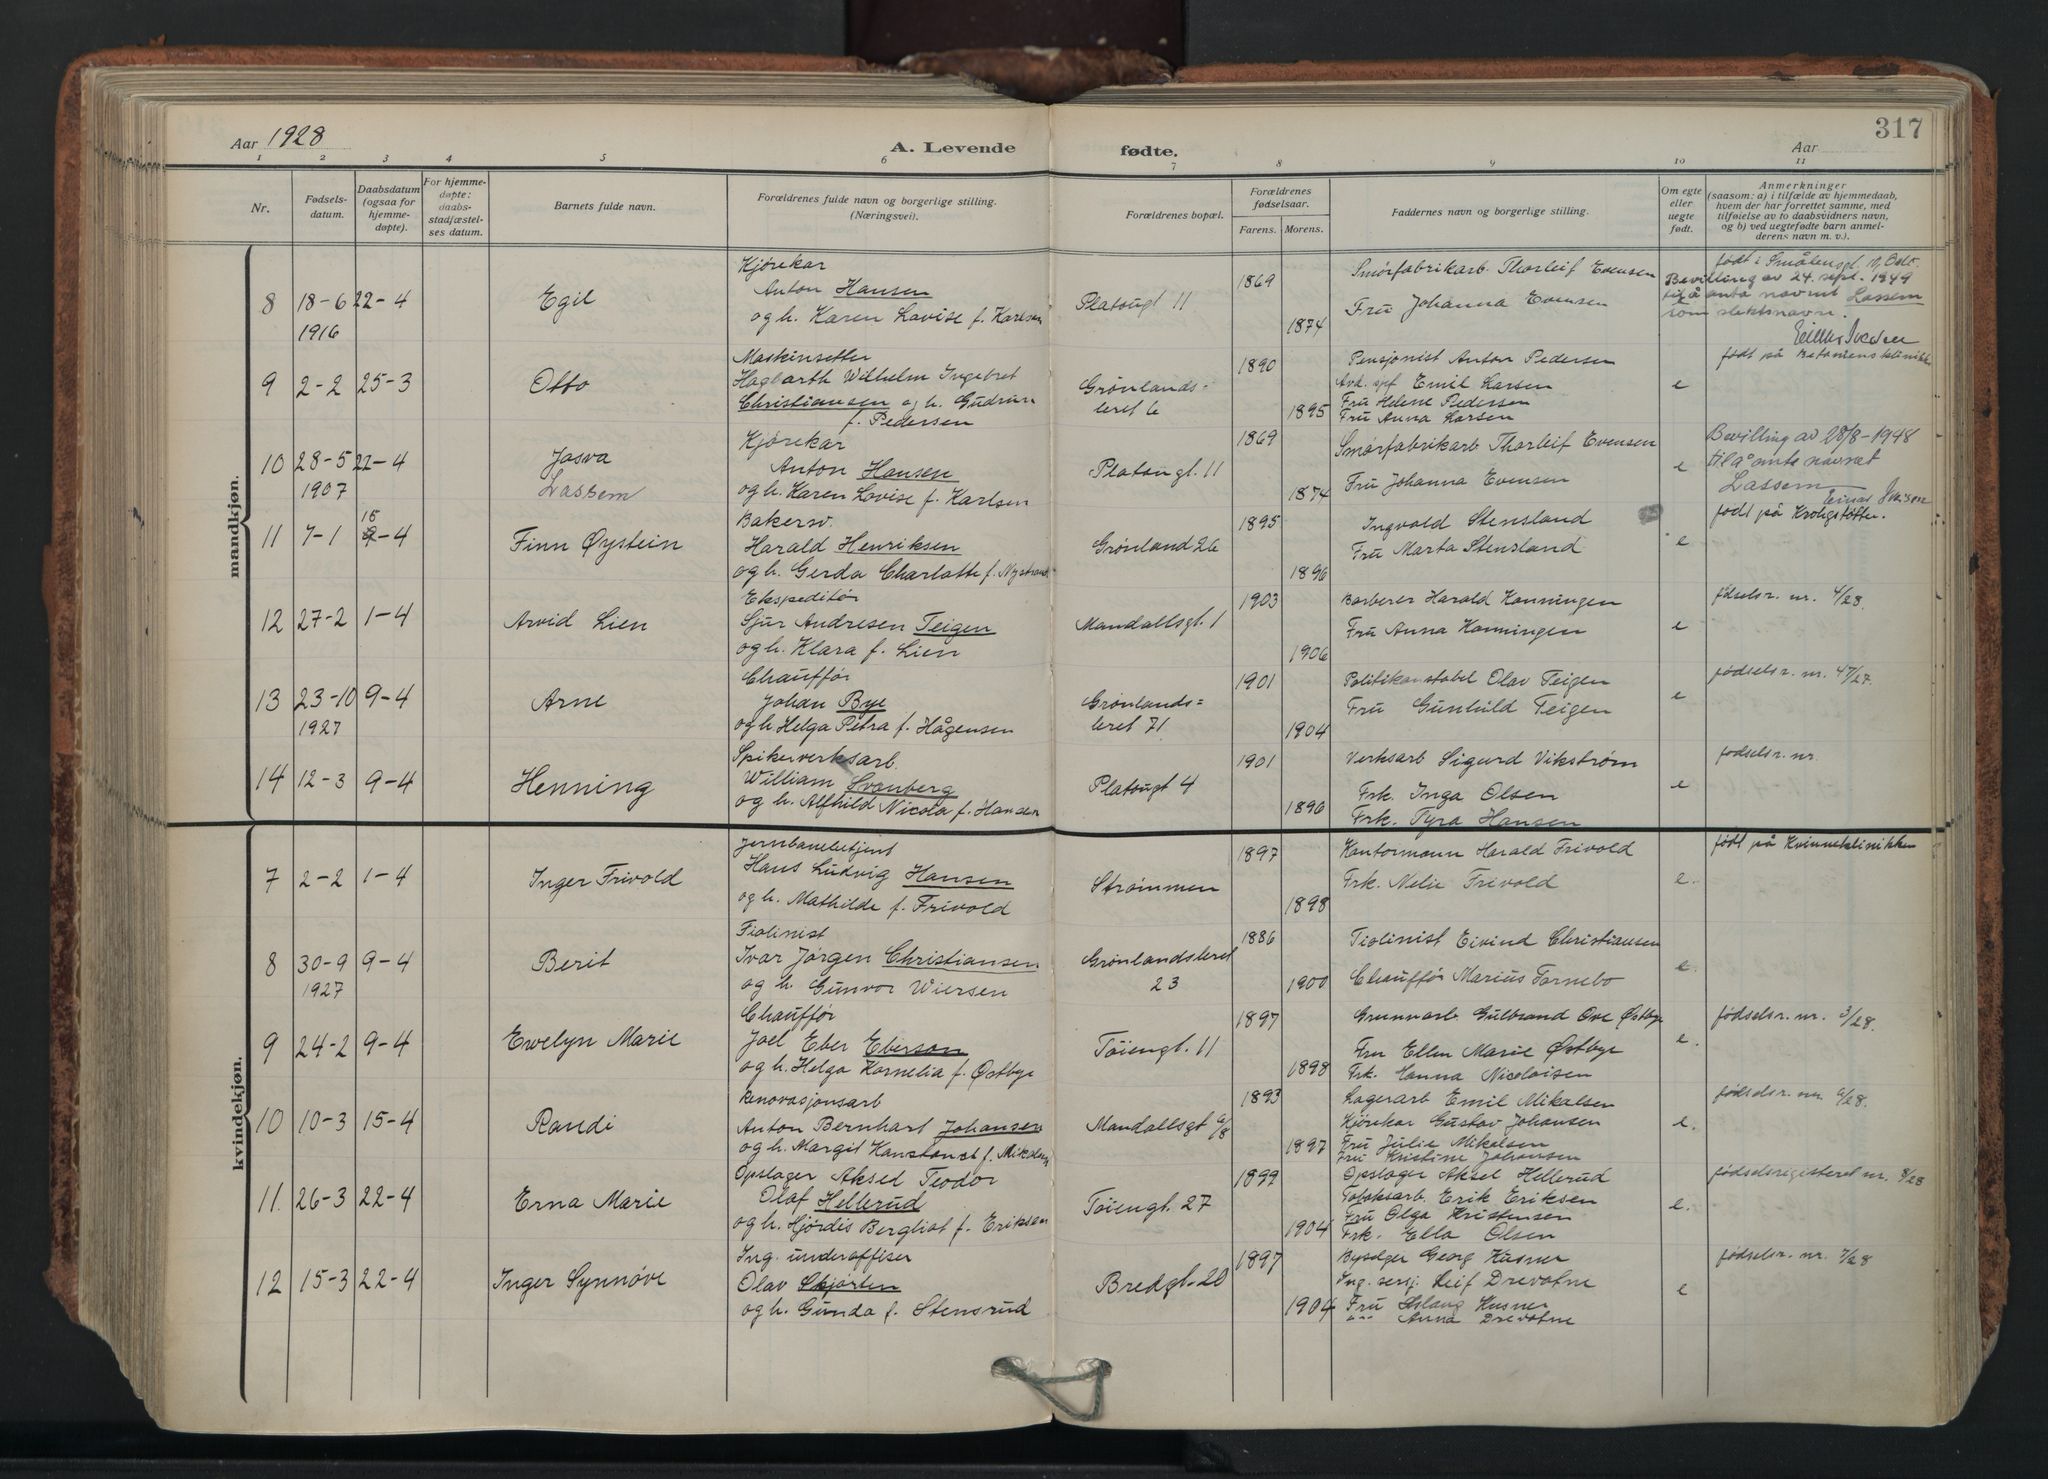 317
Aar 1928
A. Levende fødte.
Aar
1 2 3 4 5 6 7 8 9 10 11
Nr.
Fødsels-
datum.
Daabsdatum
(ogsaa for
hjemme-
døpte).
For hjemme-
døpte:
daabs-
stadfæstel-
ses datum.
Barnets fulde navn.
Forældrenes fulde navn og borgerlige stilling.
(Næringsvei).
Forældrenes bopæl.
Forældrenes
fødselsaar.
Farens. Morens.
Faddernes navn og borgerlige stilling.
Om egte
eller
uegte
født.
Anmerkninger
(saasom: a) i tilfælde av hjemmedaab,
hvem der har forrettet samme, med
tilføielse av to daabsvidners navn,
og b) ved uegtefødte barn anmel-
derens navn m. v.).
mandkjøn.
8 18-6 1916 22-4
Egil
Kjørekar
Anton Hansen
og h. Karen Lovise f. Karlsen
Platougt 11
1869
1874
Smørfabrikarb Thorleif Evensen
Fru Johanna Evensen
Bevilling av 24. sept. 1949
til å anta navnet Lassem
som slektsnavn.
9 2-2 25-3
Otto
Maskinsetter
Hagbarth Wilhelm Ingebret
Christiansen og h. Gudrun
f. Pedersen
Grønlands-
leret 6
1890
1895
Pensjonist Anton Pedersen
Avd. sjef Emil Larsen
Fru Helene Pedersen
Fru Anna Larsen
e
født på Betaniensklinikk
10 28-5 1907 22-4
Jasva
Lassem
Kjørekar
Anton Hansen
og h. Karen Lovise f. Karlsen
Platougt. 11
1869
1874
Smørfabrikarb Thorleif Evensen
Fru Johanna Evensen
e
Bevilling av 28/8-1948
til å anta navnet
Lassem
11 7-1 15-4
Finn Øystein
Bakersv.
Harald Henriksen
og h. Gerda Charlotte f. Nystrand
Grønland 26
1895
1896
Ingvald Stensland
Fru Marta Stensland
e
født på Krohgstøtten.
12 27-2 1-4
Arvid Lien
Ekspeditør
Sjur Andresen Teigen
og h. Klara f. Lien
Mandallsgt. 1
1903
1906
Barberer Harald Konningen
Fru Anna Konningen
e
fødselsr. nr. 4/28.
13 23-10 1927 9-4
Arne
Chauffør
Johan Bye
og h Helga Petra f. Hågensen
Grønlands-
leret 71
1901
1904
Politikonstabel Olav Teigen
Fru Gunhild Teigen
e
fødselsr. nr. 47/27.
14 12-3 9-4
Henning
Spikerverksarb.
William Svanberg
og h. Alfhild Nicola f. Hansen
Platougt 4
1901
1896
Verksarb Sigurd Vikstrøm
Frk. Inga Olsen
Frk. Tyra Hansen
e
fødselsr. nr.
kvindekjøn.
7 2-2 1-4
Inger Frivold
Jernbanebetjent
Hans Ludvig Hansen
og h. Mathilde f. Frivold
Strømmen
1897
1898
Kontormann Harald Frivold
Frk. Nelie Frivold
e.
født på Kvinneklinikken
8 30-9 1927 9-4
Berit
Fiolinist
Ivar Jørgen Christiansen
og h. Gunvor Wiersen
Grønlandsleret
23
1886
1900
Fiolinist Eivind Christiansen
Chauffør Marius Tornebo
e.
9 24-2 9-4
Ewelyn Marie
Chauffør
Joel Eber Eberson
og h. Helga Kornelia f. Østbye
Tøiengt. 11
1897
1898
Grunnarb Gulbrand Ove Østbye
Fru Ellen Marie Østbye
Frk. Hanna Nicolaisen
e.
fødselsr. nr. 3/28.
10 10-3 15-4
Randi
Renovasjonsarb
Anton Bernhart Johansen
og h. Margit Konstance f. Mikalsen
Mandallsgt 6/8
1893
1897
Lagerarb Emil Mikalsen
Kjørekar Gustav Johansen
Fru Julie Mikalsen
Fru Kristine Johansen
e.
fødselsr. nr. 6/28.
11. 26-3 22-4
Erna Marie
Opslager Aksel Teodor
Olaf Hellerud
og h. Hjørdis Bergliot f. Eriksen
Tøiengt. 27
1899
1904
Opslager Aksel Hellerud
Tobaksarb. Erik Eriksen
Fru Olga Kristensen
Frk. Ella Olsen
e.
fødselsregisteret nr. 8/28
12 15-3 22-4
Inger Synnøve
Ing. underoffiser
Olav Skjørten
og h. Gunda f. Stensrud
Bredgt. 20
1897
1904
Byselger Georg Kusner
Ing. sersj. Leif Drevatne
Fru Aslaug Kusner
"" Anna Drevatne
e
fødselsr. nr. 7/28